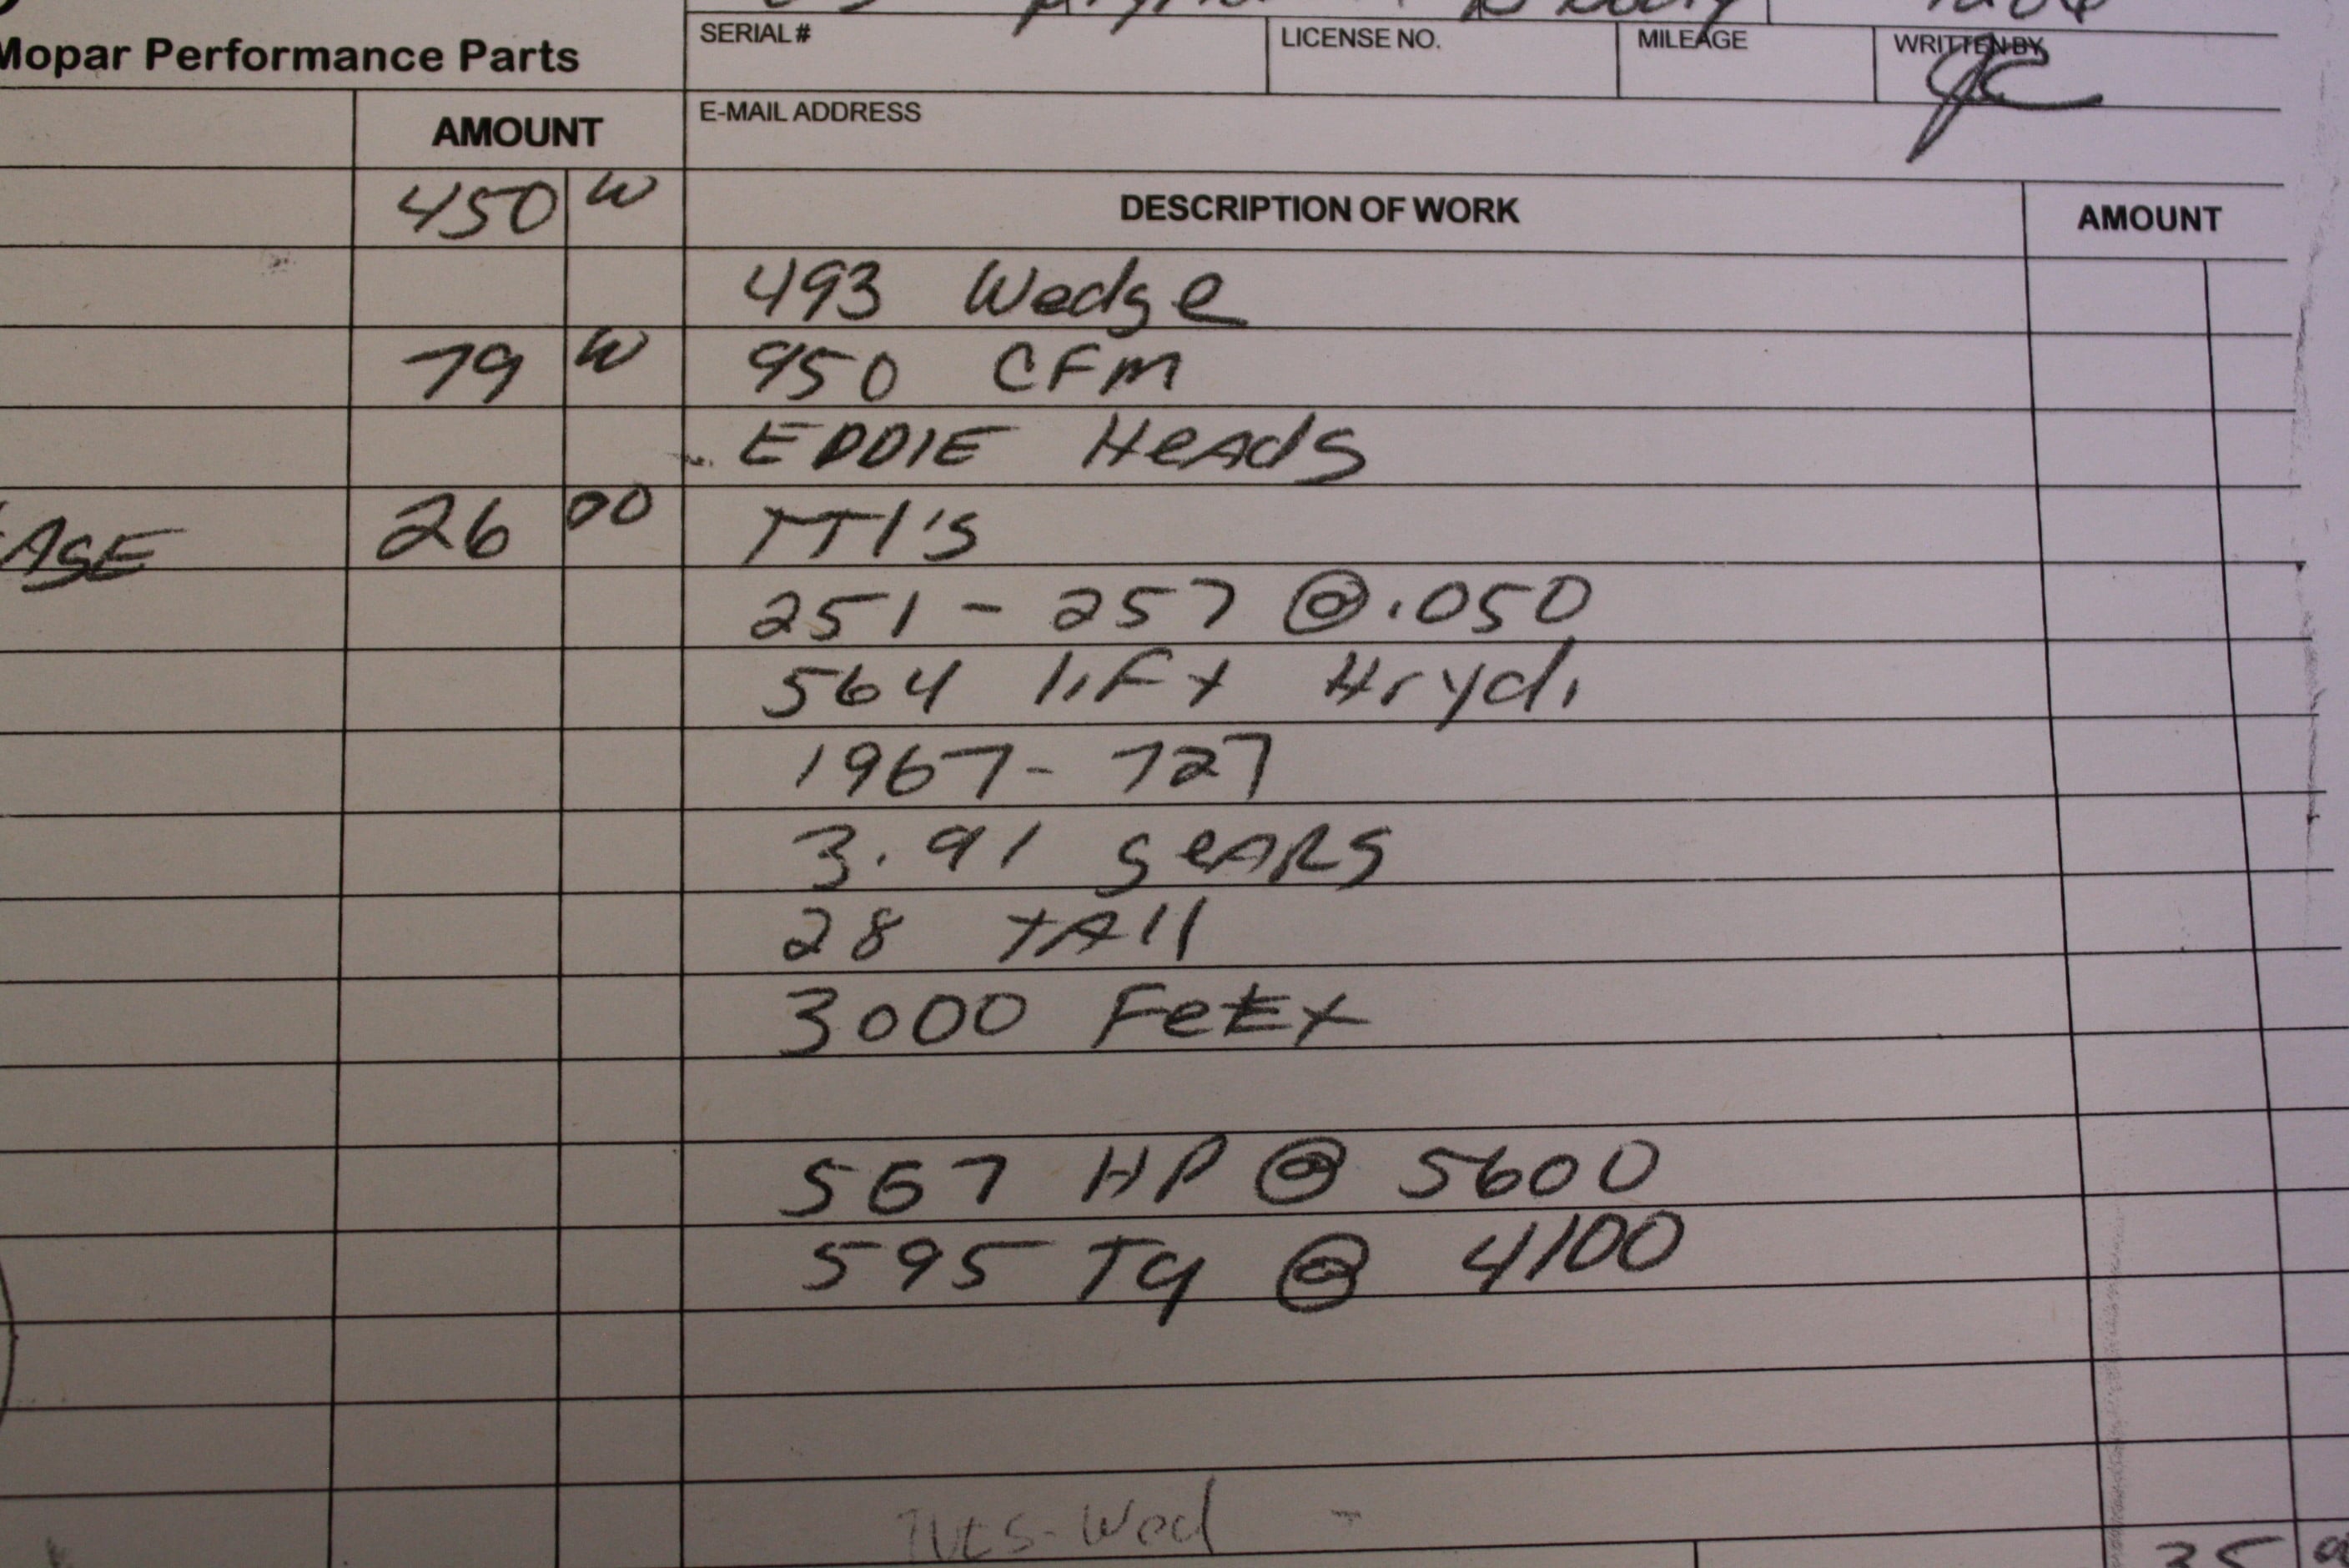 Mopar Performance Parts
SERIAL#
LICENSE NO.
MILEAGE
WRITTEN BY
JC
E-MAIL ADDRESS
AMOUNT
DESCRIPTION OF WORK
AMOUNT
450
493 Wedge
79
950 CFM
EDDIE HeAdS
ASE 26 00
TTI'S
251 - 257 @ .050
564 lift Hryd.
1967- 727
3.91 geARS
28 tAll
3000 FeEt
567 HP @ 5600
595 Tq @ 4100
TUES-Wed -
35